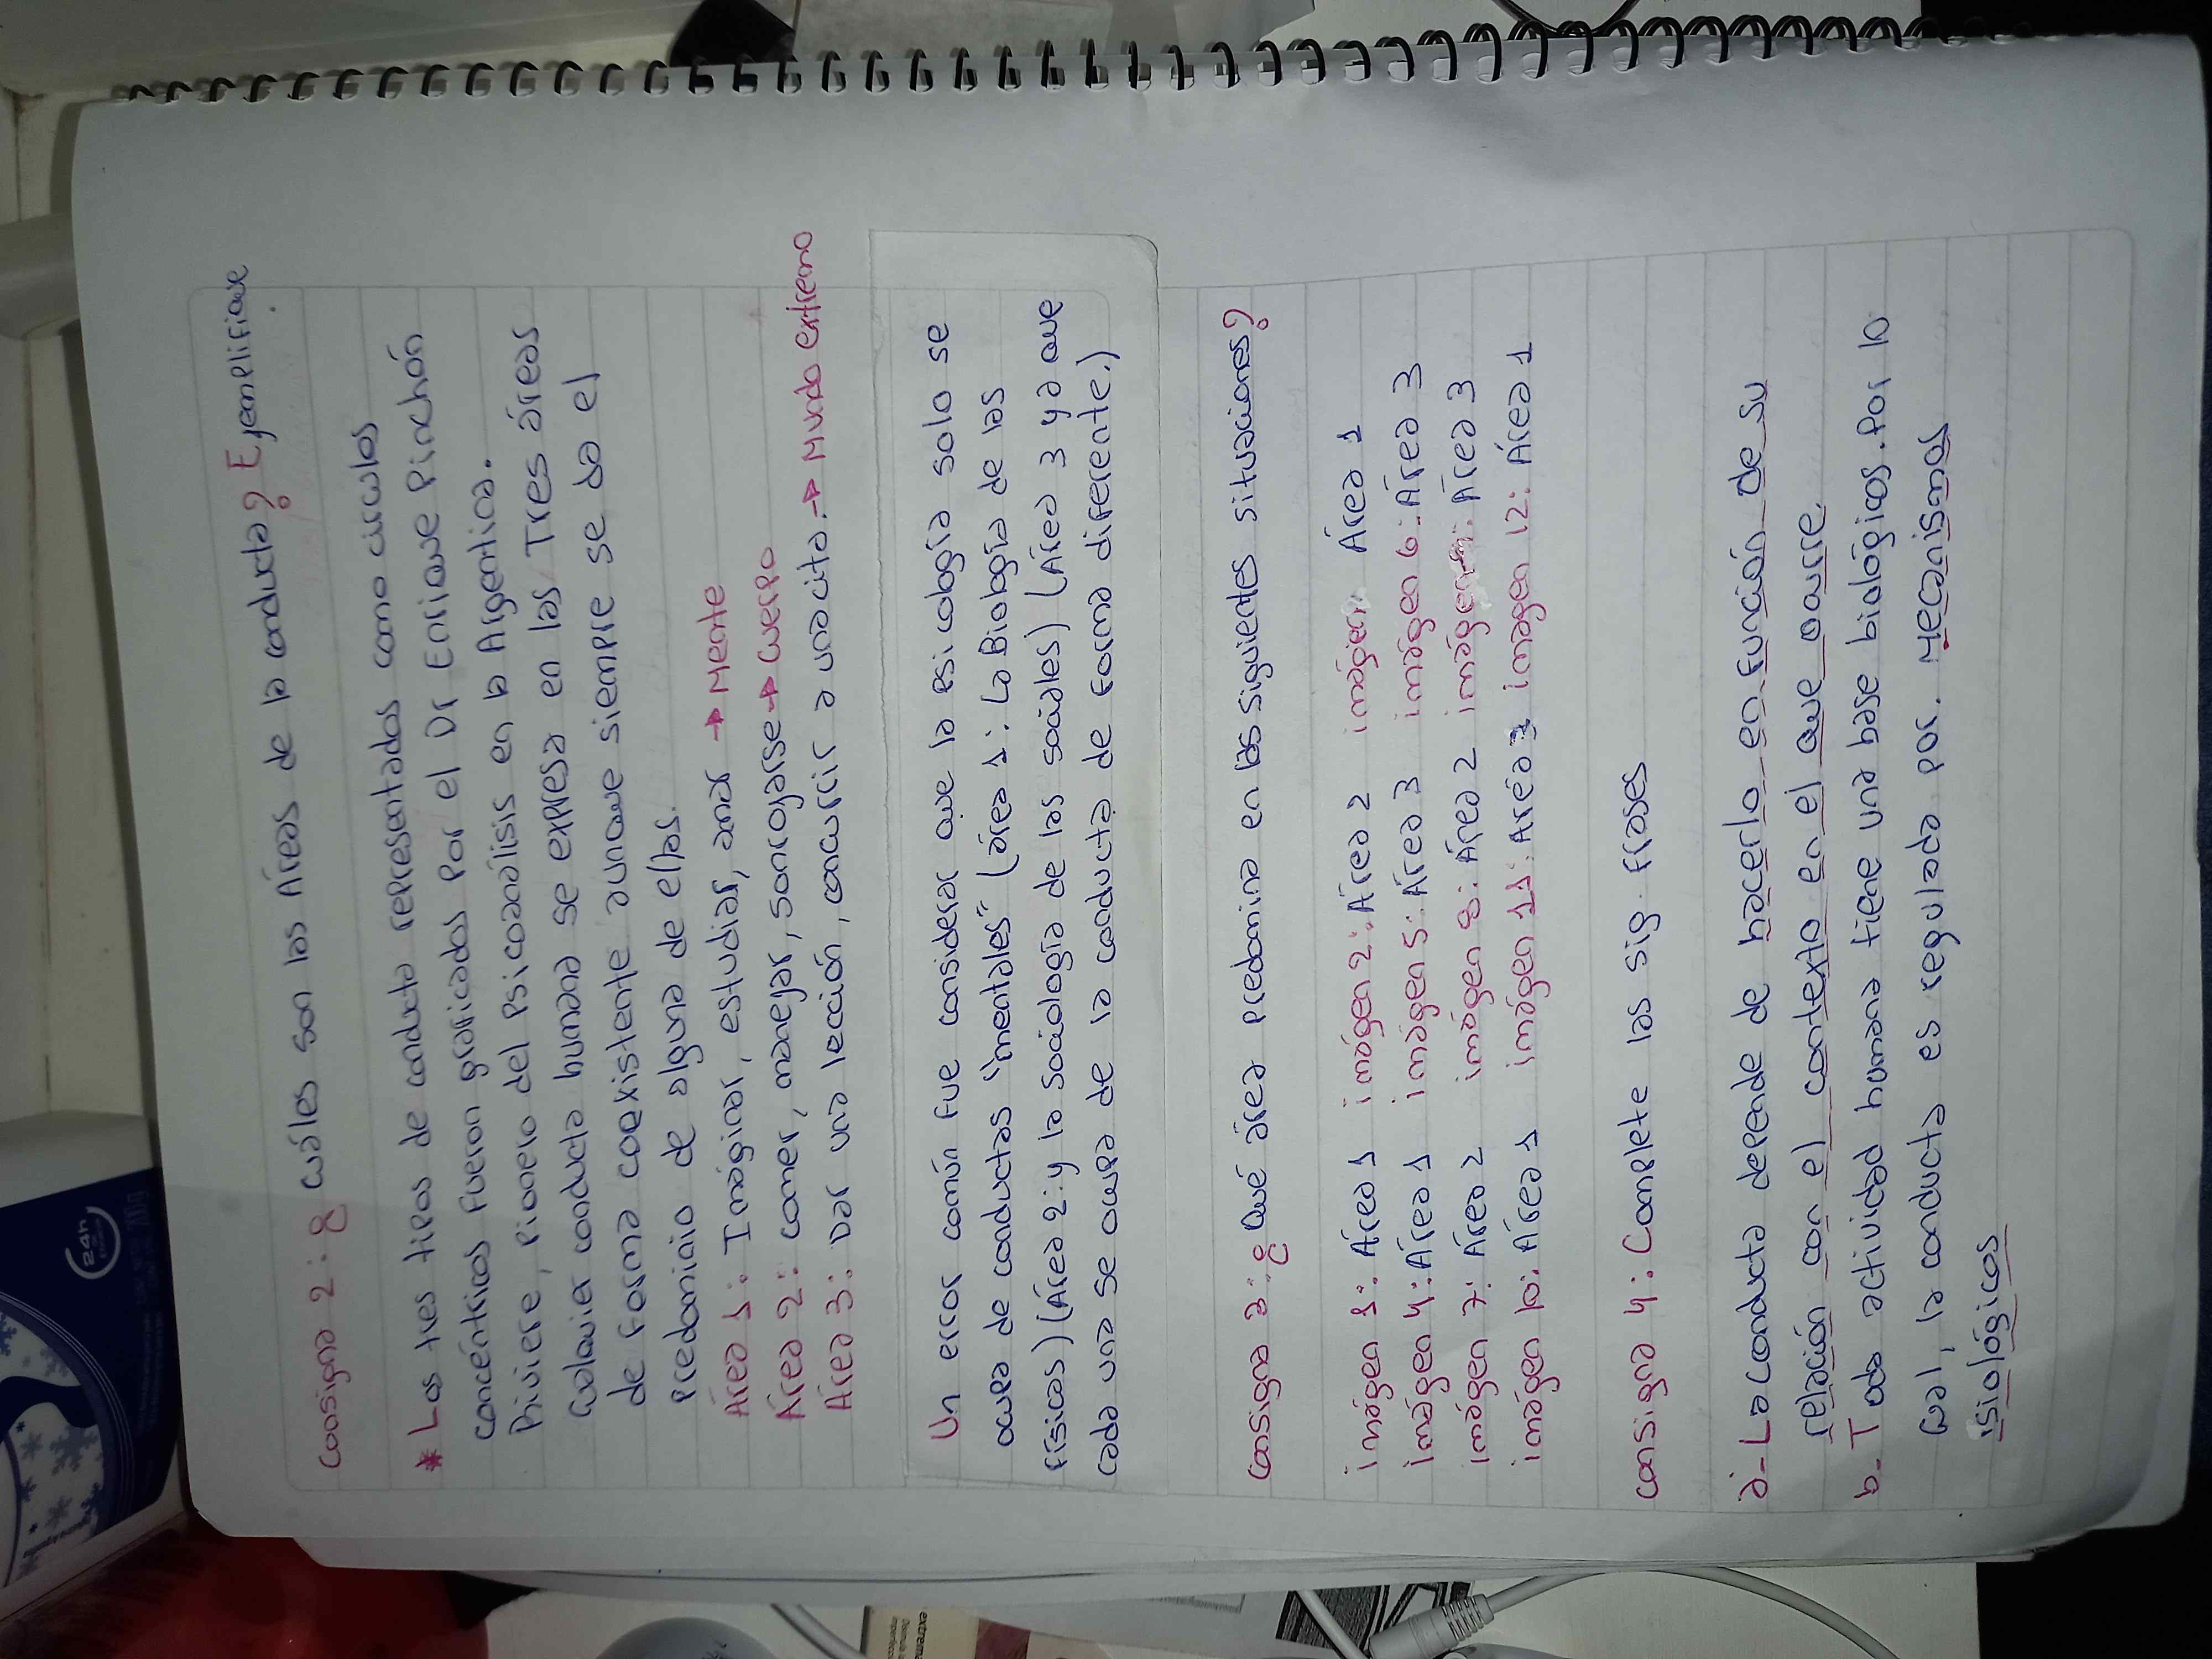 Consigna 2: ¿ cuáles son las Áreas de la conducta? Ejemplifique.
* Los tres tipos de conducta representados como circulos
concéntricos fueron graficados por el Dr Enrique Pinchón
Riviere, pionero del psicoanálisis en la Argentica.
Cualquier conducta humana se expresa en las Tres áreas
de forma coexistente aunque siempre se da el
predominio de alguna de ellas.
Área 1: Imáginar, estudiar, amar → Mente
Área 2: comer, manejar, sonrojarse → cuerpo
Área 3: Dar una lección, concurrir a una cita. → Mundo externo
Un error común fue considerar que la psicología solo se
ocupa de conductas "mentales" (área 1: La Biología de las
físicas) (Área 2: y la sociología de las sociales) (Área 3 ya que
cada una se ocupa de la conducta de forma diferente.)
Consigna 3: ¿ Qué área predomina en las siguientes situaciones?
imágen 1: Área 1 imágen 2: Área 2 imágen Área 1
imágen 4: Área 1 imágen 5: Área 3 imágen 6: Área 3
imágen 7: Área 2 imágen 8: Área 2 imágen : Área 3
imágen 10: Área 1 imágen 11: Área 3 imagen 12: Área 1
consigna 4: Complete las sig. frases
a- La conducta depende de hacerlo en función de su
relación con el contexto en el que ocurre.
b- Toda actividad humana tiene una base biológicos. Por lo
cual, la conducta es regulada por. Mecanismos
isiológicos
24h
extrem